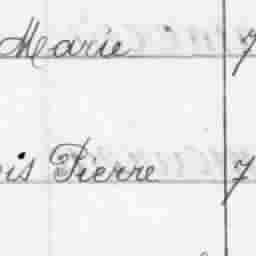 Marie 7
is Pierre 7